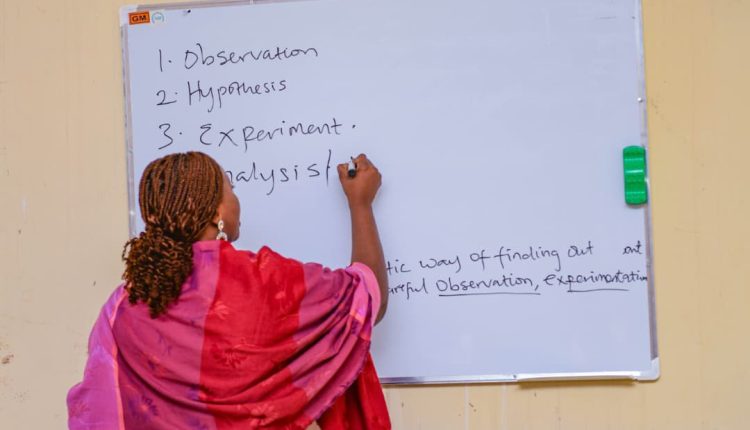 GM
1. Observation
2. Hypothesis
3. Experiment.
nalysis/
tic way of finding out
areful Observation, Experimentation